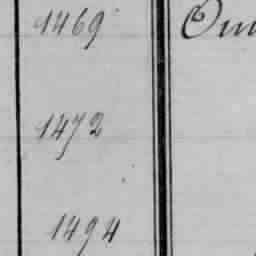 1469
1472
1494